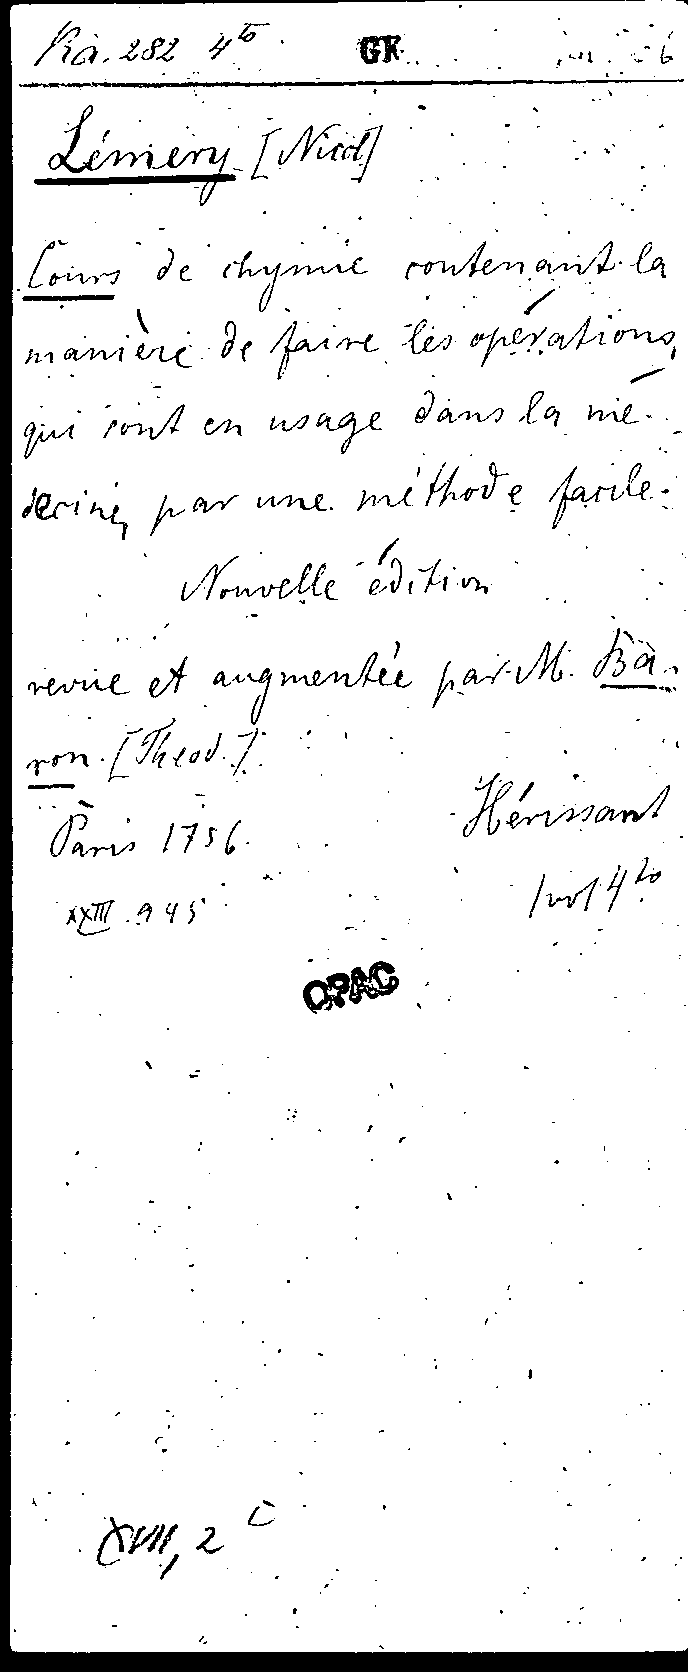 Ra. 282 4to GK
Lémery [Nicol]
Cours de chymie contenant la
manière de faire les opérations,
qui sont en usage dans la mé-
decine, par une méthode facile.
Nouvelle édition
revue et augmentée par M. Ba-
ron. [Theod.]
Paris 1756. Hérissant
XXIII. 945 1 vol 4to
OPAC
XVII, 2 c